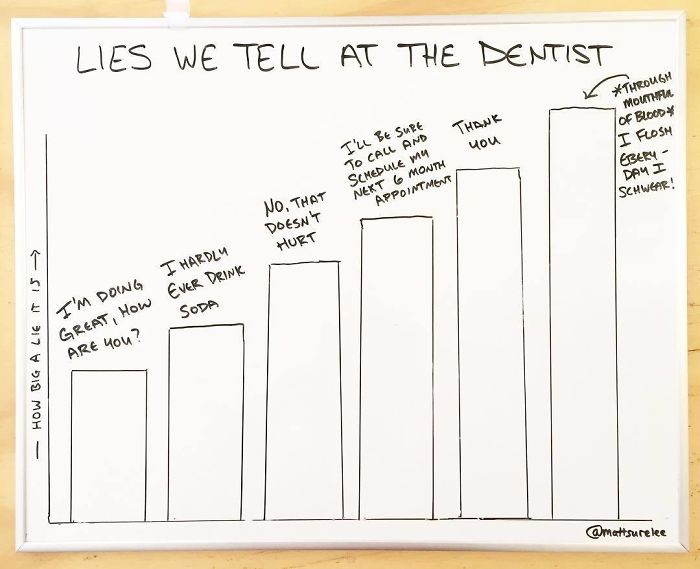 LIES WE TELL AT THE DENTIST
— HOW BIG A LIE IT IS →
I'M DOING
GREAT, HOW
ARE YOU?
I HARDLY
EVER DRINK
SODA
NO, THAT
DOESN'T
HURT
I'LL BE SURE
TO CALL AND
SCHEDULE MY
NEXT 6 MONTH
APPOINTMENT
THANK
YOU
*THROUGH
MOUTHFUL
OF BLOOD*
I FLOSH
EBERY-
DAY I
SCHWEAR!
@mattsurelee